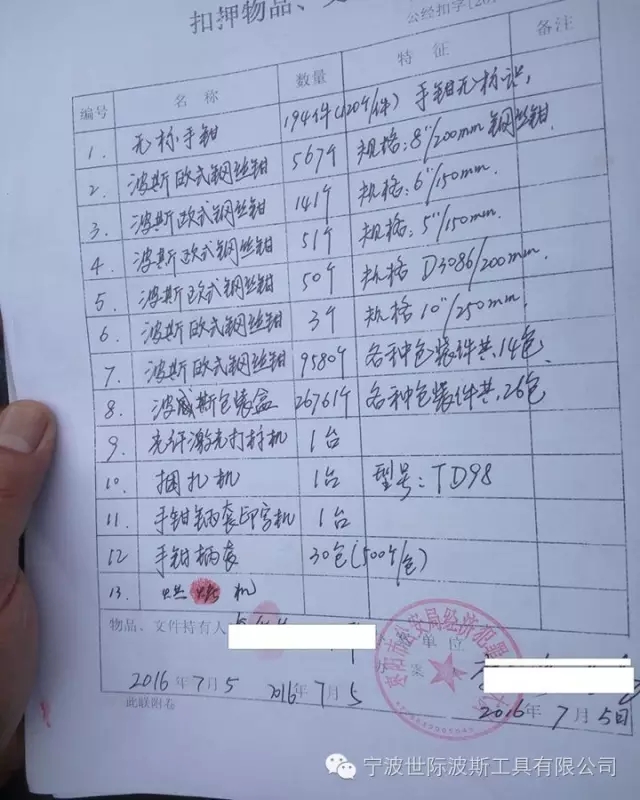 扣押物品、
公经扣字[20
编号 名称 数量 特征 备注
1. 无标手钳 194件(120个/件) 手钳无标识,
2. 波斯欧式钢丝钳 567个 规格:8"/200mm 钢丝钳
3. 波斯欧式钢丝钳 141个 规格:6"/150mm.
4. 波斯欧式钢丝钳 51个 规格:5"/150mm.
5. 波斯欧式钢丝钳 50个 规格 D3086/200mm.
6. 波斯欧式钢丝钳 3个 规格10"/250mm.
7. 波斯欧式钢丝钳 9580个 各种包装件共14包.
8. 波威斯包装盒 26761个 各种包装件共26包
9. 光纤激光打标机 1台
10. 捆扎机 1台 型号:TD98
11. 手钳柄套印字机 1台
12 手钳柄套 30包(500个/包)
13. 机
物品、文件持有人
办案单位
公安局经济犯罪
2016年7月5 2016年7月5 2016年7月5日
此联附卷
宁波世际波斯工具有限公司